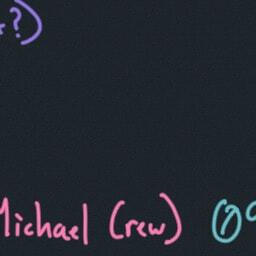 ?)
Michael (rew)